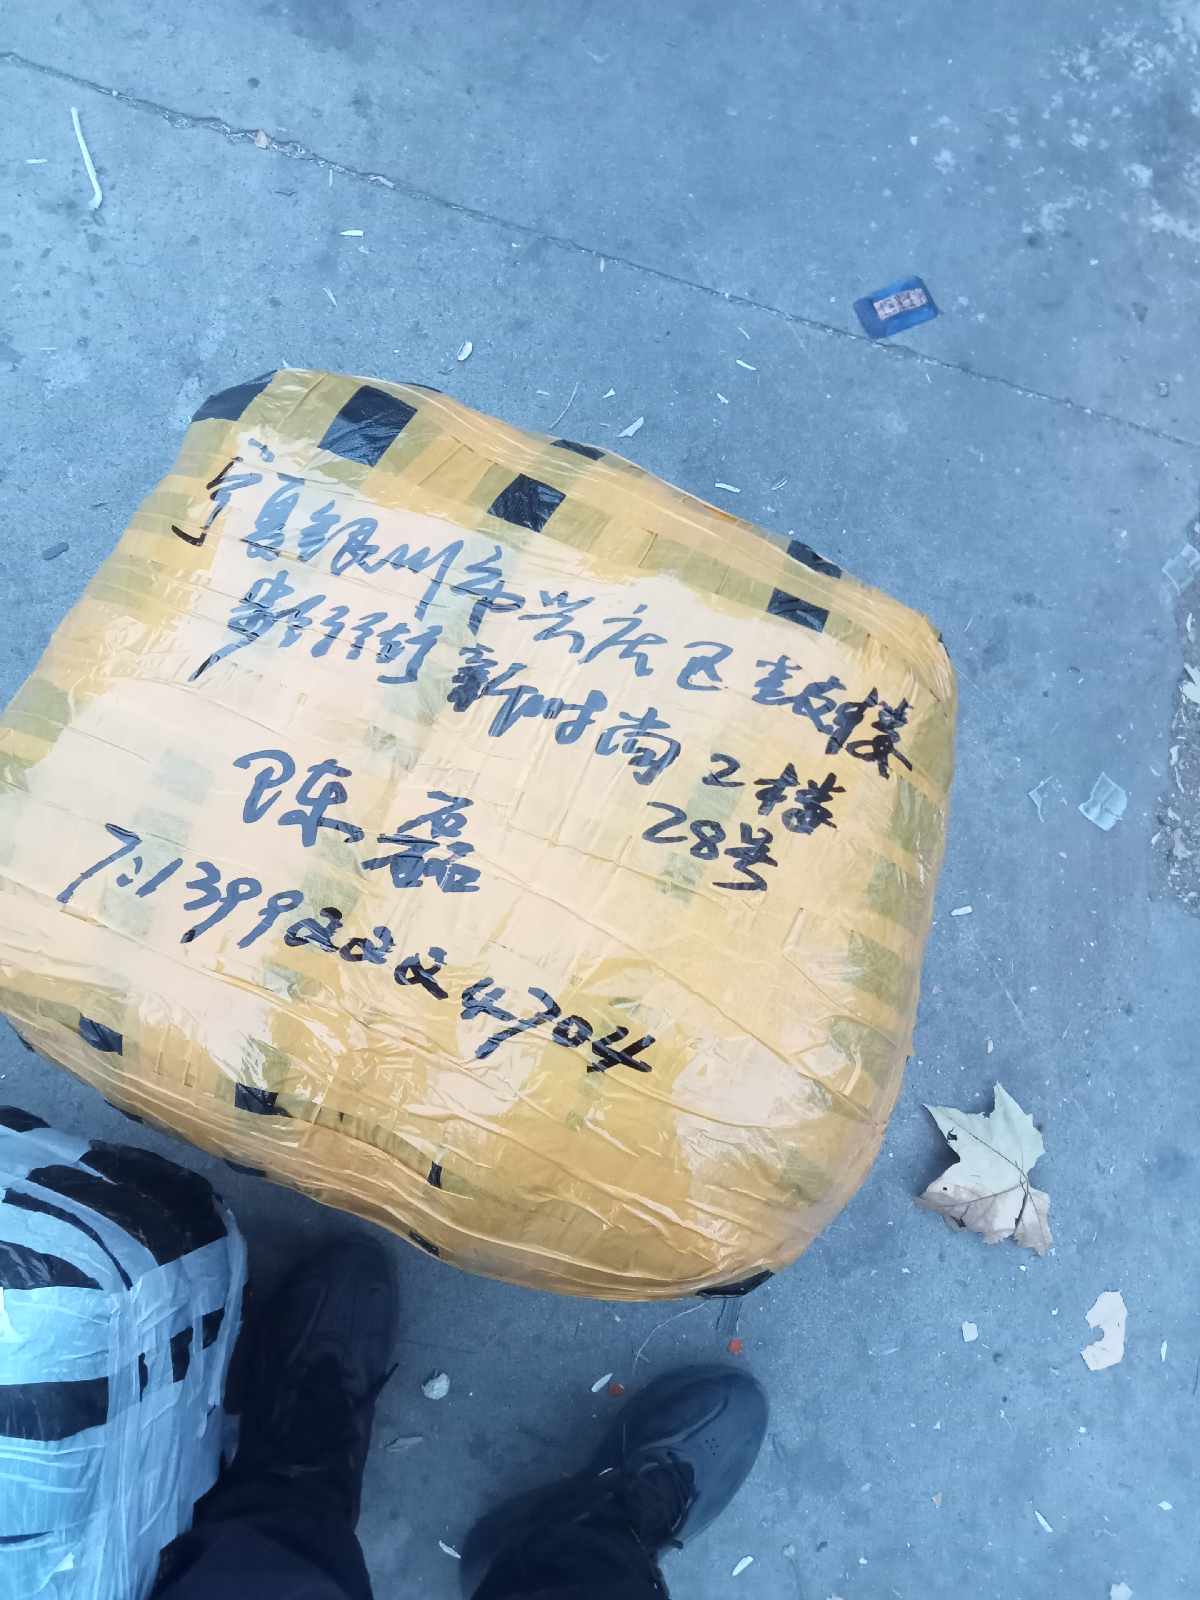 宁夏银川市兴庆区鼓楼
步行街新时尚2楼
28号
陈磊
T:13992224704